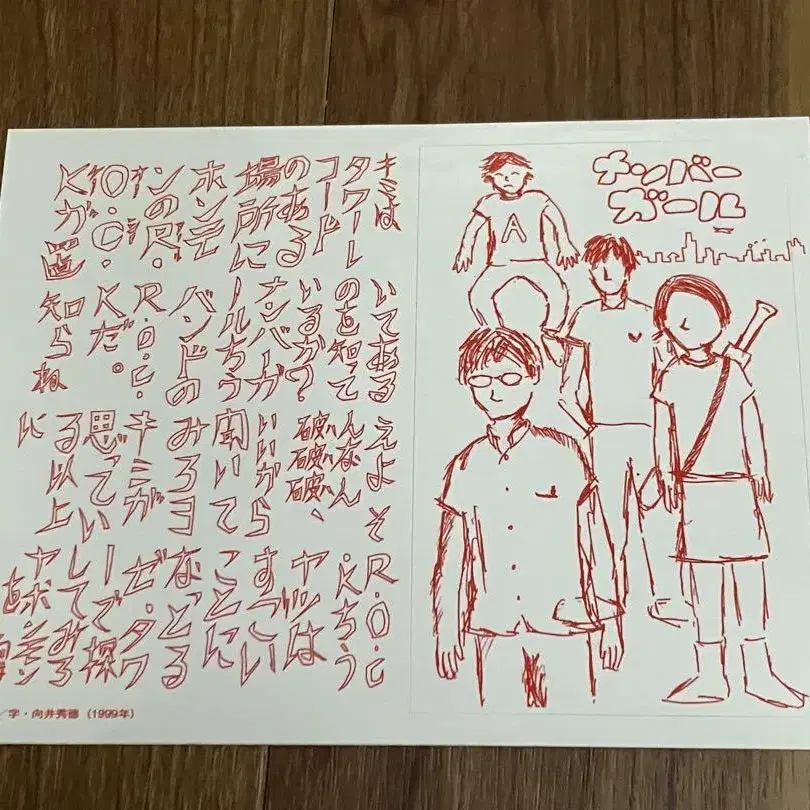 キミは
タワーレ
コード
のある
場所に
ホンモ
ンのR.
O.C.
Kが置
いてある
のを知って
いるか?
ナンバーガ
ールちう
バンドの
R.O.C.
Kだ。
知らね
えよそ
んなん
破ハ破ハ破ハ、
いいから
聞いて
みろヨ
キミが
思てい
る以上
に
R.O.C
.Kちう
ヤツは
すっごい
ことに
なっどる
ぜ・タワ
ーで探
してみろ
ナンバー
ガール
A
／字・向井秀徳（1999年）